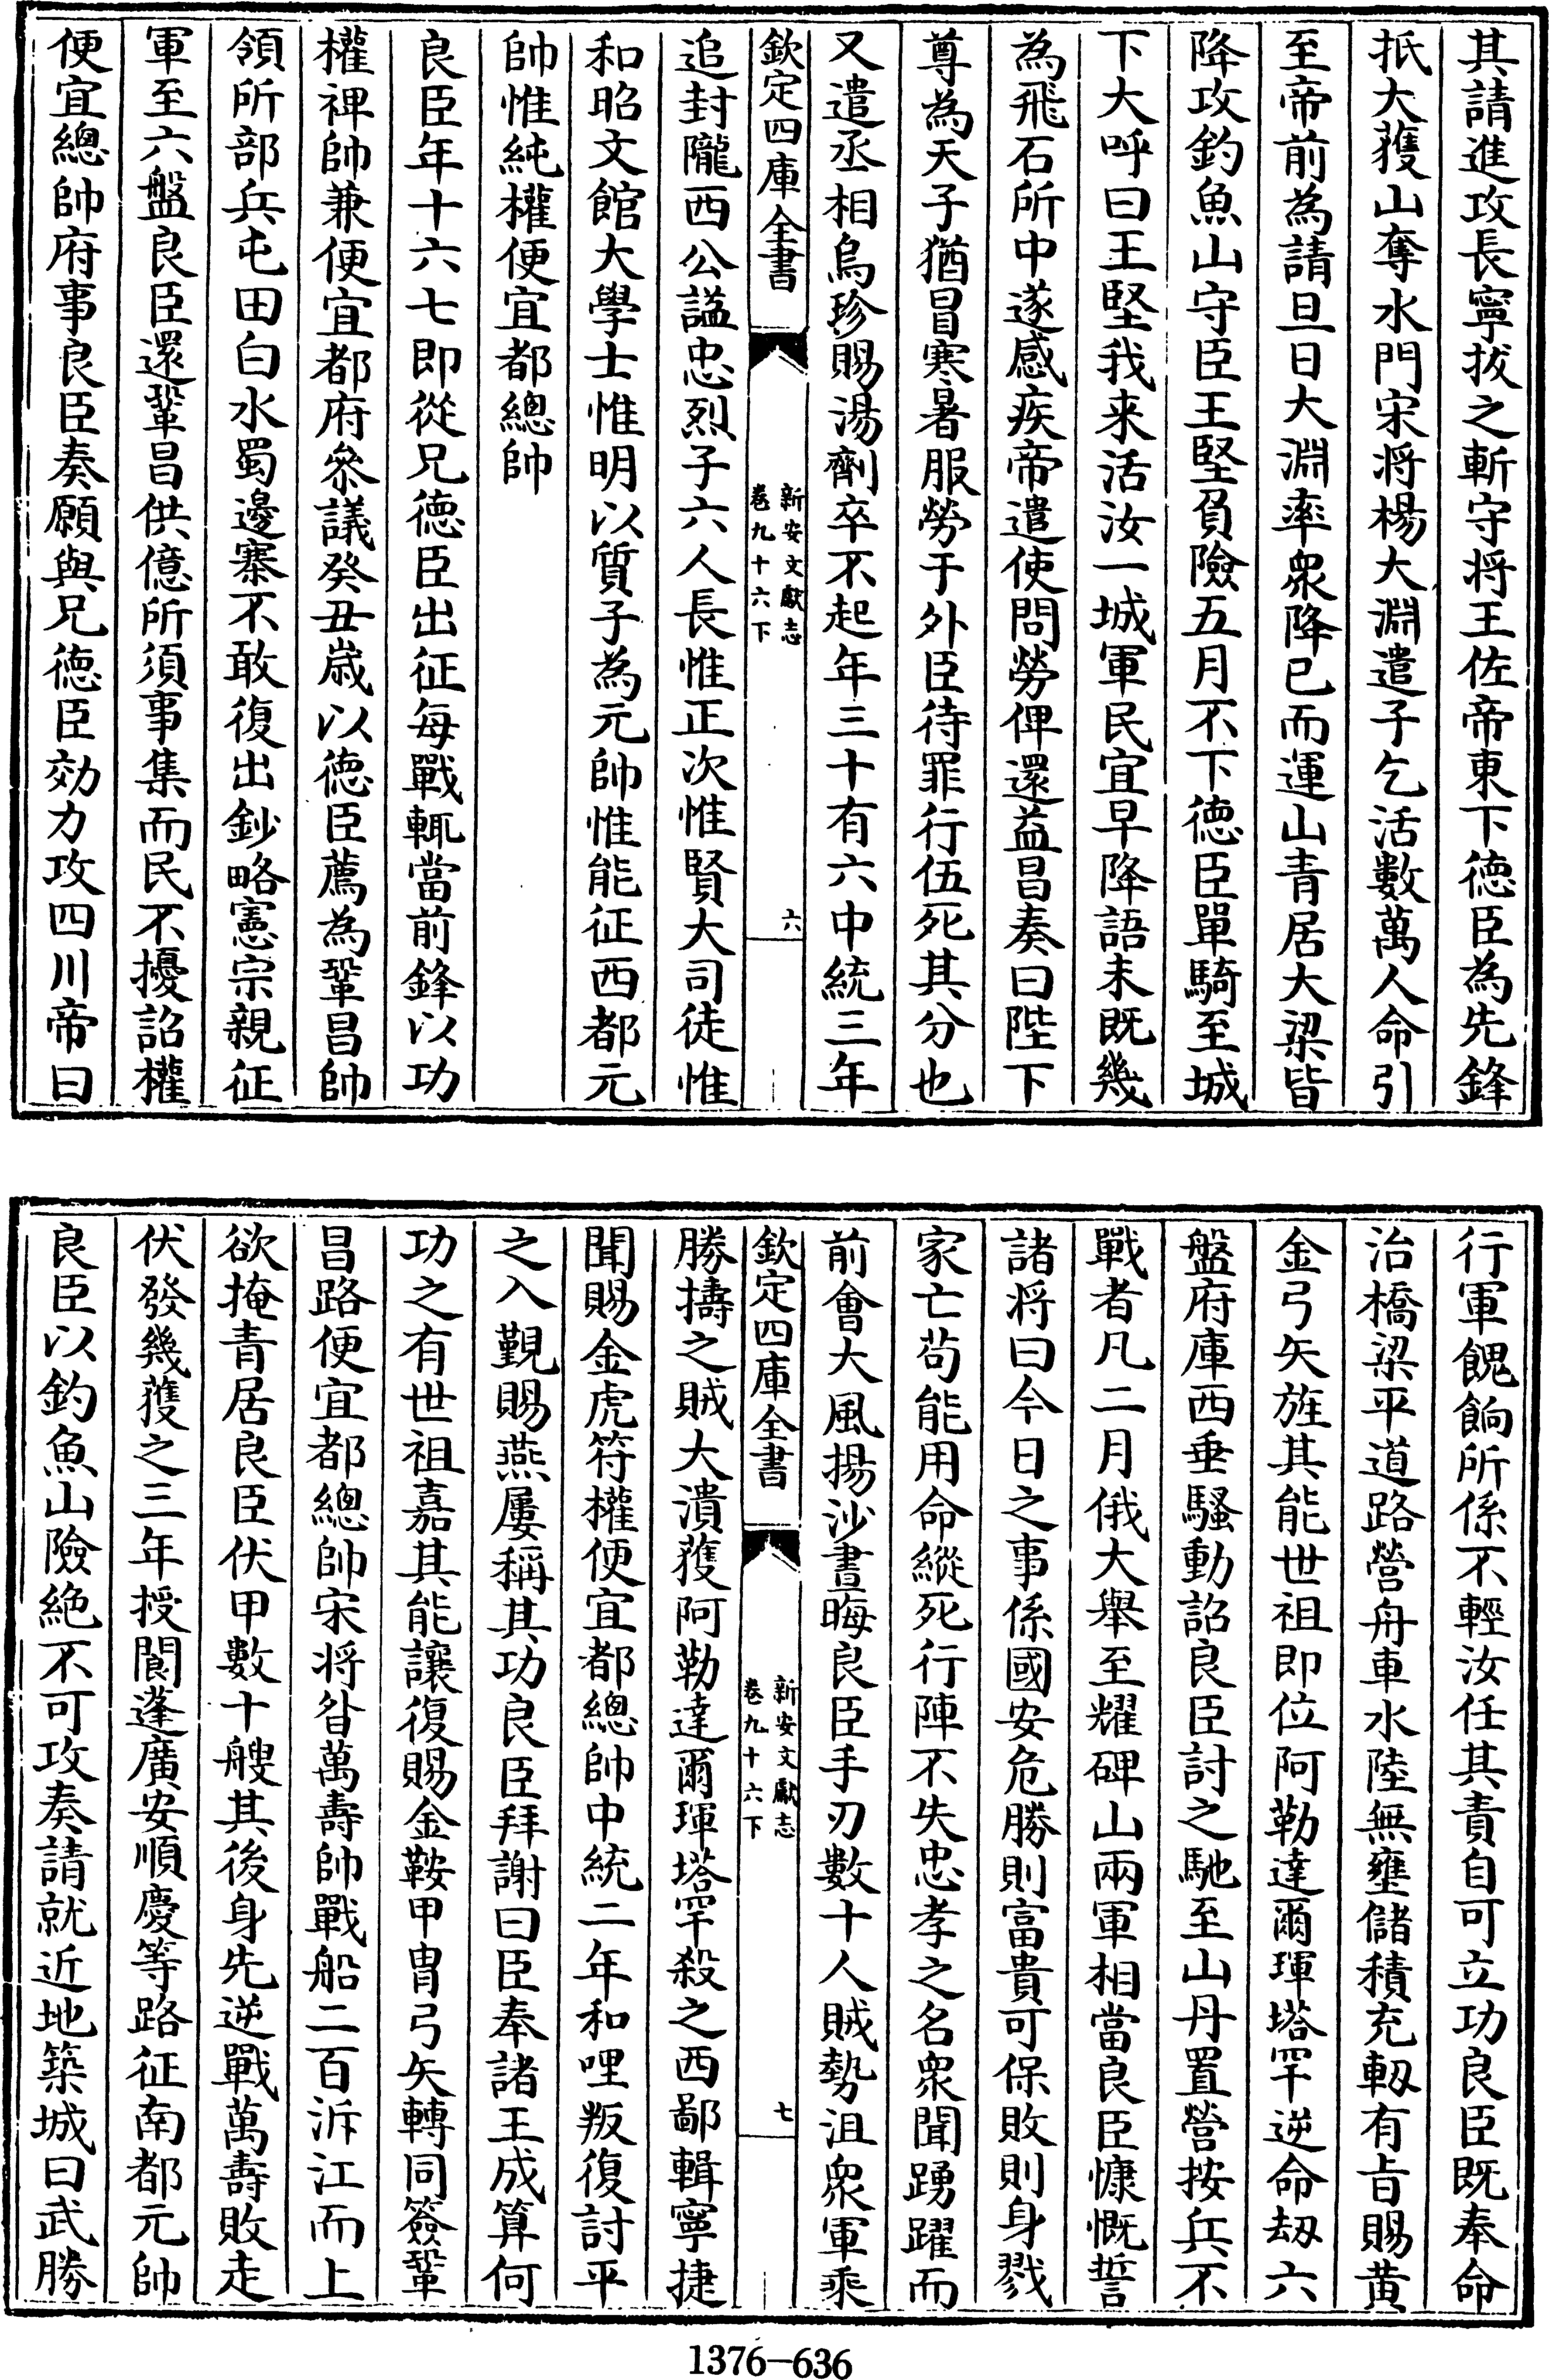 其請進攻長寧拔之斬守将王佐帝東下徳臣為先鋒
抵大獲山奪水門宋将楊大淵遣子乞活數萬人命引
至帝前為請旦日大淵率衆降已而運山青居大梁皆
降攻釣魚山守臣王堅負險五月不下徳臣單騎至城
下大呼曰王堅我来活汝一城軍民宜早降語未既幾
為飛石所中遂感疾帝遣使問勞俾還益昌奏曰陛下
尊為天子猶冒寒暑服勞于外臣待罪行伍死其分也
又遣丞相烏珍賜湯劑卒不起年三十有六中統三年
欽定四庫全書
新安文獻志
卷九十六下
六
追封隴西公謚忠烈子六人長惟正次惟賢大司徒惟
和昭文館大學士惟明以質子為元帥惟能征西都元
帥惟純權便宜都總帥
良臣年十六七即從兄徳臣出征每戰輒當前鋒以功
權裨帥兼便宜都府叅議癸丑嵗以徳臣薦為鞏昌帥
領所部兵屯田白水蜀邊寨不敢復出鈔略憲宗親征
軍至六盤良臣還鞏昌供億所須事集而民不擾詔權
便宜總帥府事良臣奏願與兄徳臣効力攻四川帝曰
行軍餽餉所係不輕汝任其責自可立功良臣既奉命
治橋梁平道路營舟車水陸無壅儲積充軔有㫖賜黄
金弓矢旌其能世祖即位阿勒達爾琿塔罕逆命劫六
盤府庫西垂騷動詔良臣討之馳至山丹置營按兵不
戰者凡二月俄大舉至耀碑山兩軍相當良臣慷慨誓
諸将曰今日之事係國安危勝則富貴可保敗則身戮
家亡苟能用命縱死行陣不失忠孝之名衆聞踴躍而
前會大風揚沙晝晦良臣手刃數十人賊勢沮衆軍乘
欽定四庫全書
新安文獻志
卷九十六下
七
勝擣之賊大潰獲阿勒達爾琿塔罕殺之西鄙輯寧捷
聞賜金虎符權便宜都總帥中統二年和哩叛復討平
之入覲賜燕屢稱其功良臣拜謝曰臣奉諸王成算何
功之有世祖嘉其能讓復賜金鞍甲胄弓矢轉同簽鞏
昌路便宜都總帥宋将昝萬壽帥戰船二百泝江而上
欲掩青居良臣伏甲數十艘其後身先逆戰萬壽敗走
伏發幾獲之三年授閬蓬廣安順慶等路征南都元帥
良臣以釣魚山險絶不可攻奏請就近地築城曰武勝
1376-636